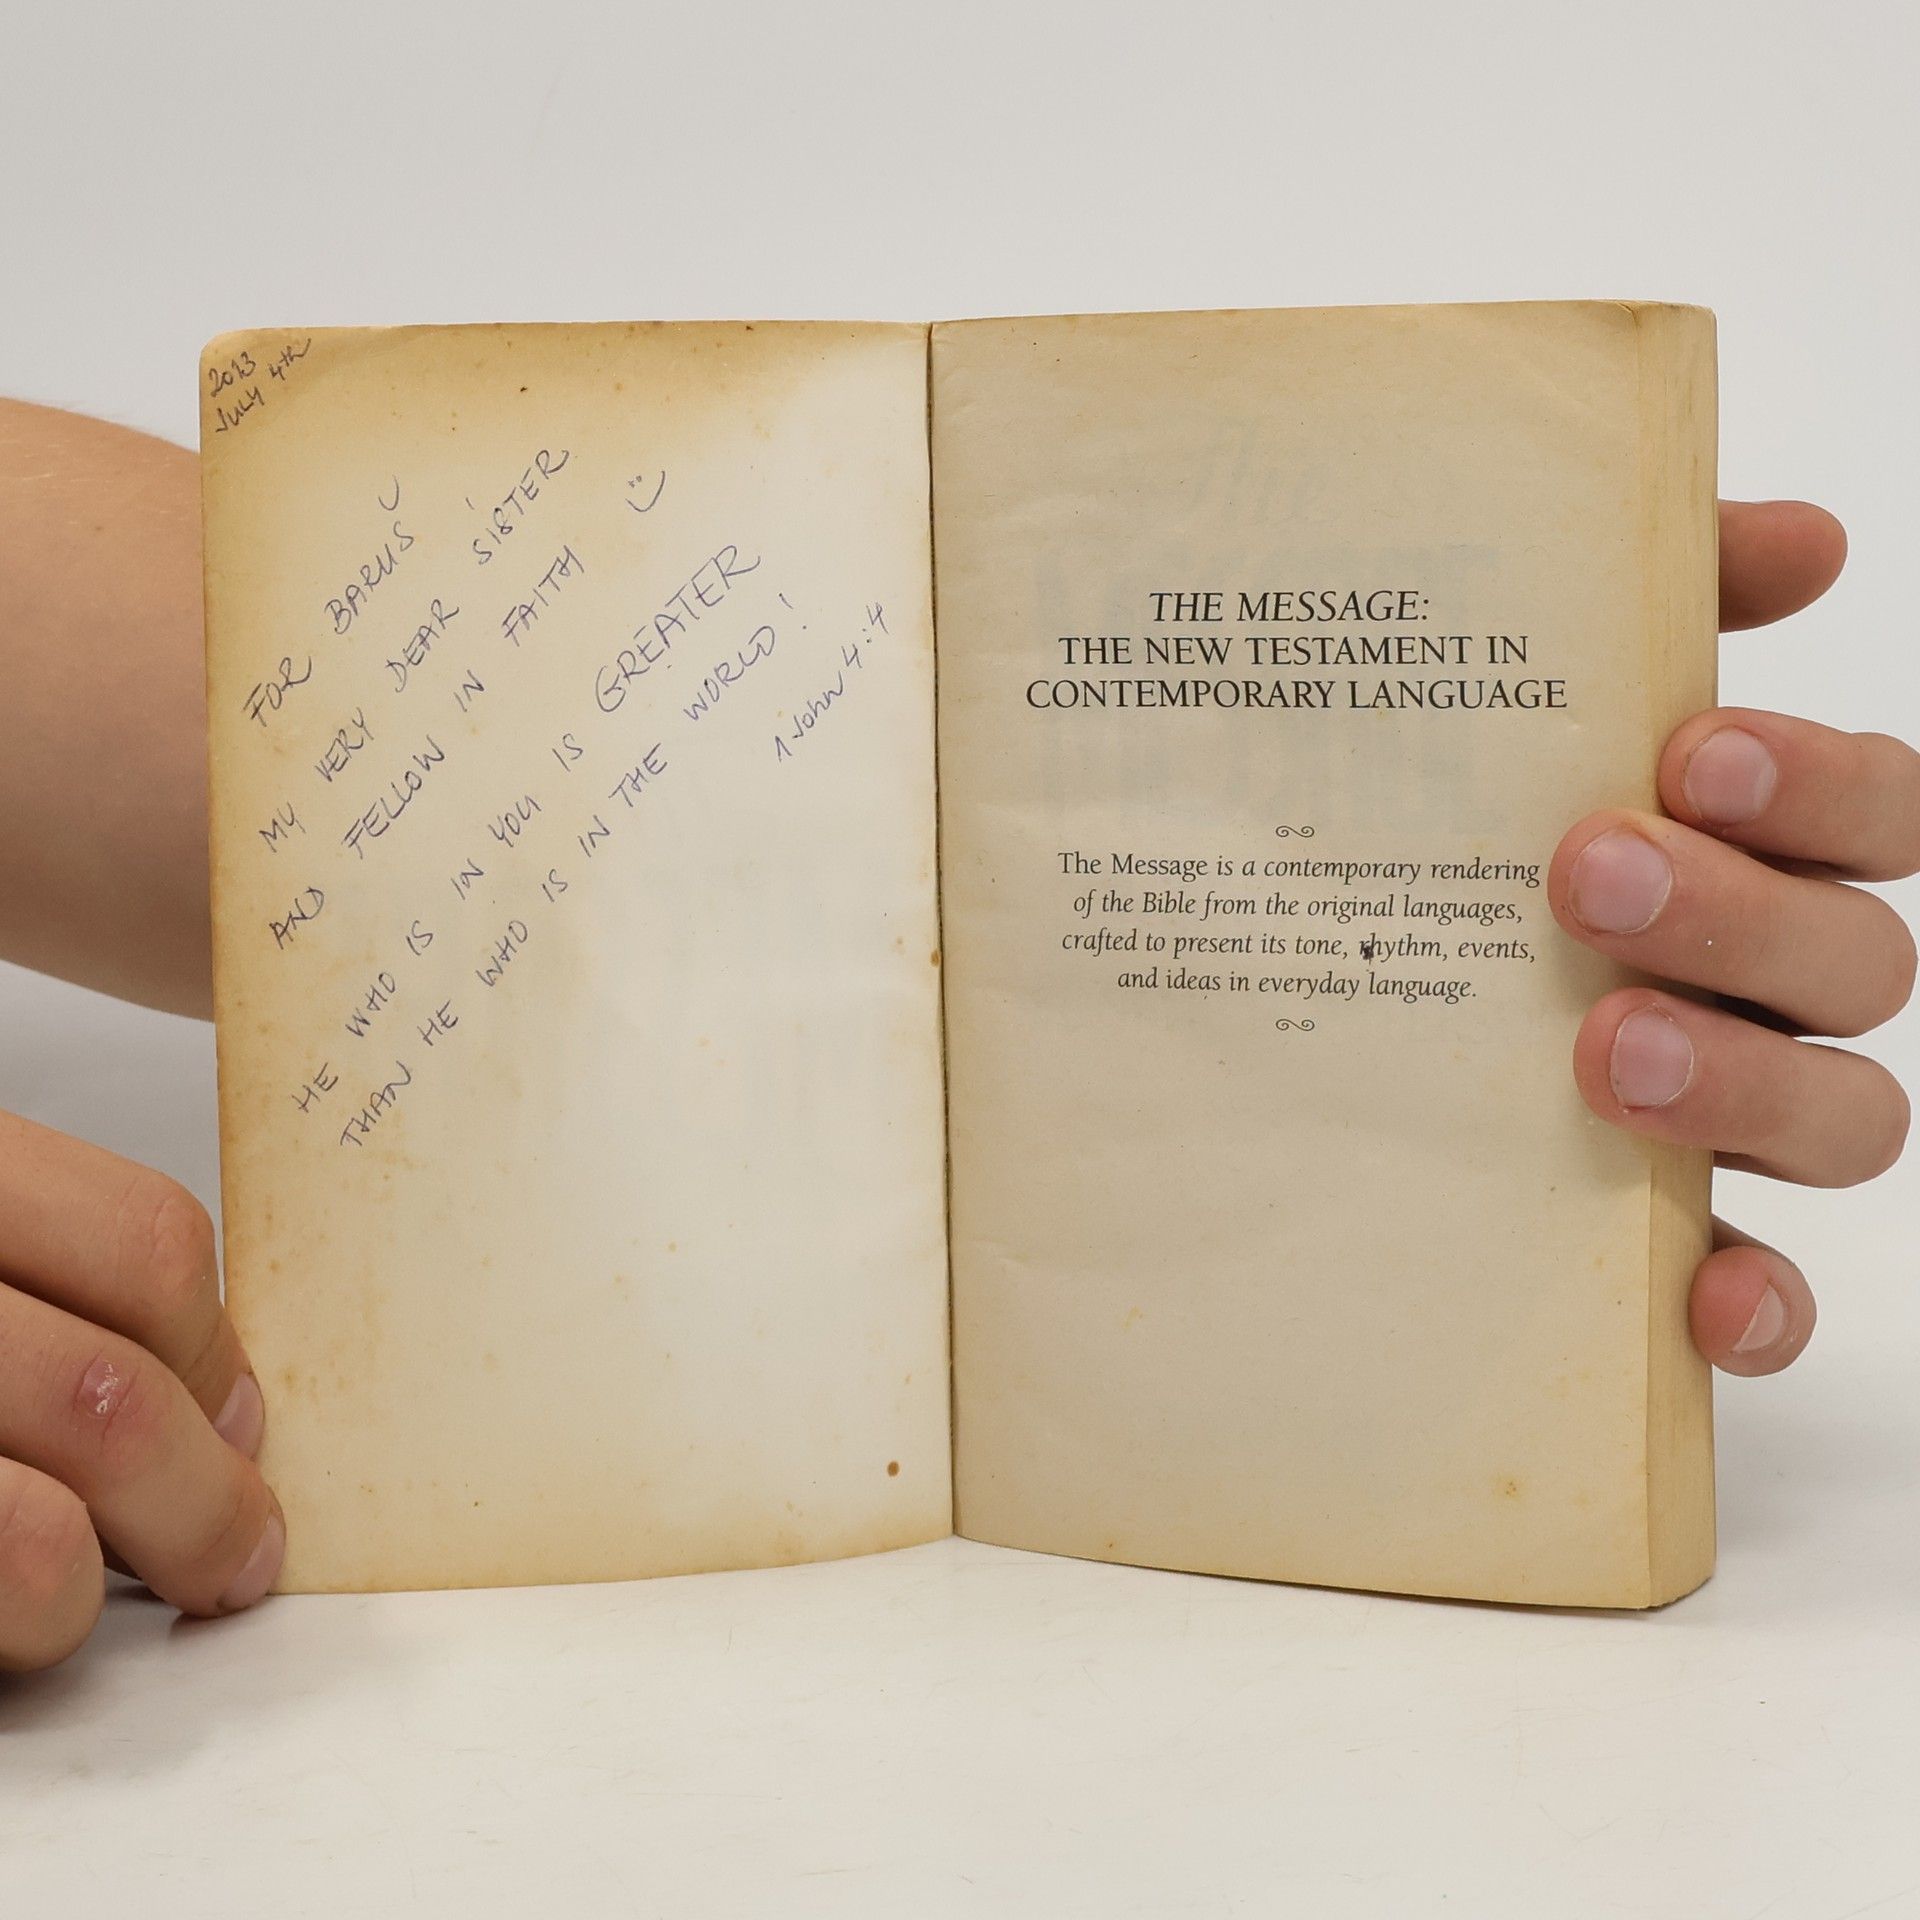 2013
JULY 4th
FOR BARUŠ
MY VERY DEAR SISTER
AND FELLOW IN FAITH :)
HE WHO IS IN YOU IS GREATER
THAN HE WHO IS IN THE WORLD!
1 John 4:4
THE MESSAGE:
THE NEW TESTAMENT IN
CONTEMPORARY LANGUAGE
The Message is a contemporary rendering
of the Bible from the original languages,
crafted to present its tone, rhythm, events,
and ideas in everyday language.